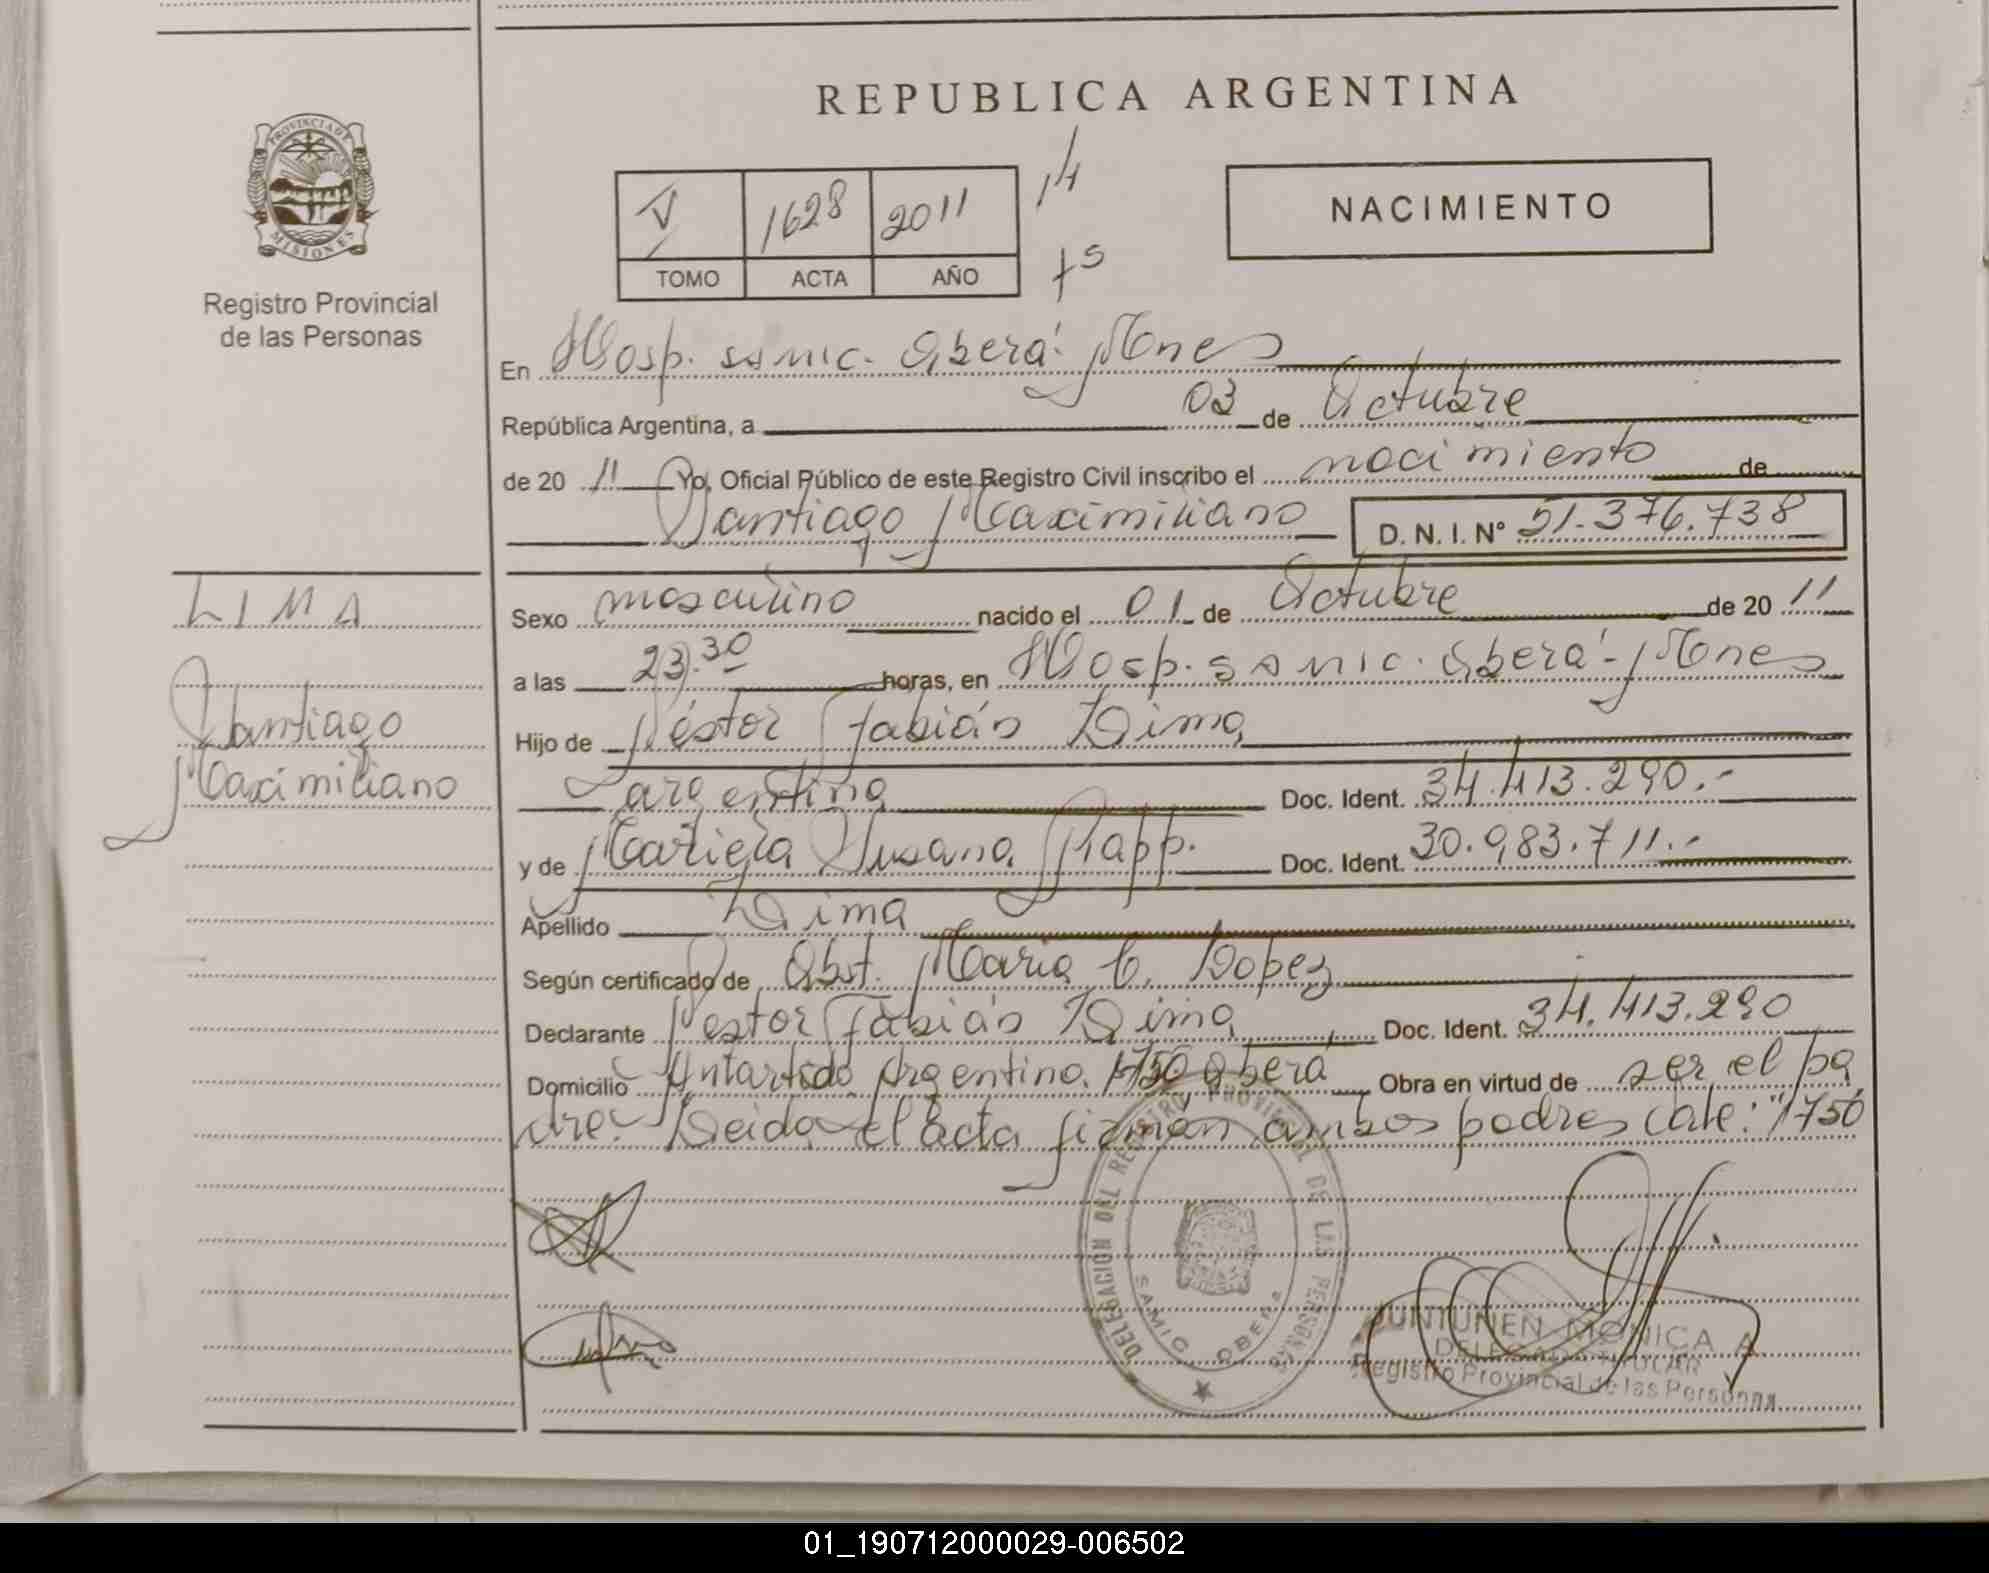 REPUBLICA ARGENTINA
PROVINCIA DE
MISIONES
Registro Provincial
de las Personas
V 1628 2011
TOMO ACTA AÑO
NACIMIENTO
En Hosp. samic. Oberá. Mnes
República Argentina, a 03 de Octubre
de 20 11 Yo, Oficial Público de este Registro Civil inscribo el nacimiento de
Santiago Maximiliano D. N. I. Nº 51.376.738
LIMA
Santiago
Maximiliano
Sexo masculino nacido el 01 de Octubre de 20 11
a las 23.30 horas, en Hosp. samic. Oberá - Mnes
Hijo de Néstor Fabián Lima
argentina Doc. Ident. 34.413.290.-
y de Mariela Susana Rapp. Doc. Ident. 30.983.711.-
Apellido Lima
Según certificado de Obst. María C. Lopez
Declarante Néstor Fabián Lima Doc. Ident. 34.413.290
Domicilio Antartida Argentina. 1750 Oberá Obra en virtud de ser el pa
dre. Leida el acta firman ambos padres vale: "1750
DELEGACION DEL REGISTRO PROVINCIAL DE LAS PERSONAS
SAMIC OBERA
JUNTUNEN MONICA A
DELEGADA TITULAR
Registro Provincial de las Personas
01_190712000029-006502